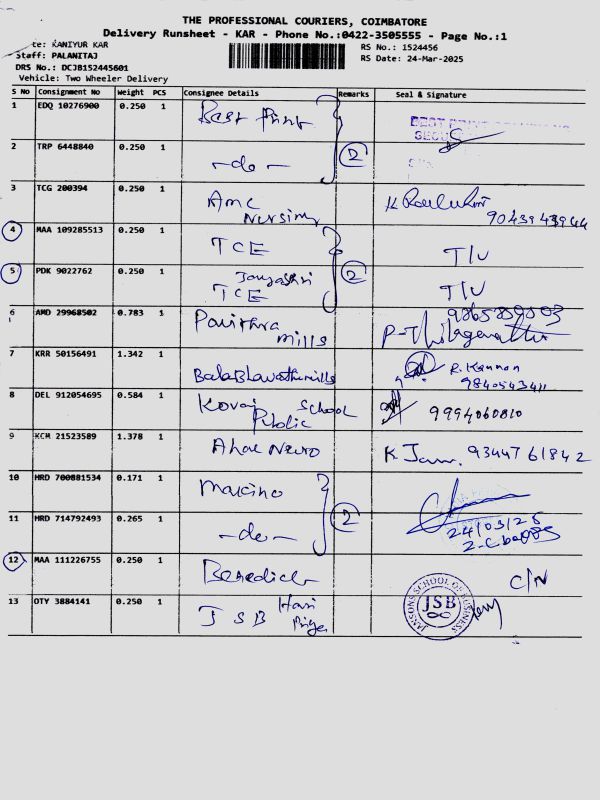 THE PROFESSIONAL COURIERS, COIMBATORE
Delivery Runsheet - KAR - Phone No.:0422-3505555 - Page No.:1
te: KANIYUR KAR RS No.: 1524456
Staff: PALANITAJ RS Date: 24-Mar-2025
DRS No.: DCJB152445601
Vehicle: Two Wheeler Delivery
S No Consignment No Weight PCS Consignee Details Remarks Seal & Signature
1 EDQ 10276900 0.250 1 Best Print
2 TRP 6448840 0.250 1 -do- 2
3 TCG 200394 0.250 1 Amc K 9043943944
4 MAA 109285513 0.250 1 TCE T/U
5 PDK 9022762 0.250 1 TCE 2 T/U
6 AMD 29968502 0.783 1 Pavithra mills 9865889803
7 KRR 50156491 1.342 1 R. Kannan 9840543411
8 DEL 912054695 0.584 1 Kovai School Public 9994060810
9 KCM 21523589 1.378 1 K 9344761842
10 HRD 700881534 0.171 1
11 HRD 714792493 0.265 1 -do- 2 24/03/25
12 MAA 111226755 0.250 1 C/N
13 OTY 3884141 0.250 1 JSB Hari JANSONS SCHOOL OF BUSINESS JSB